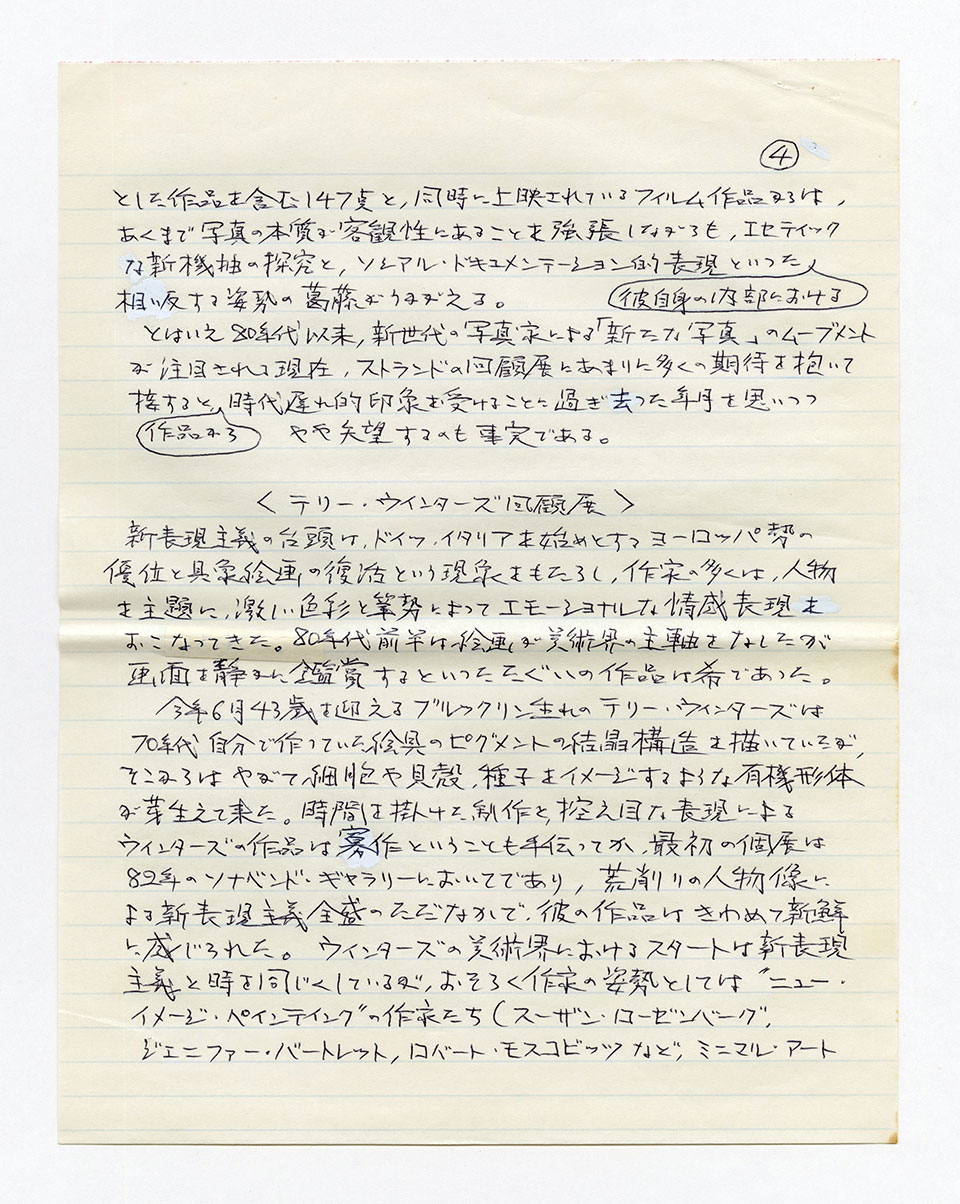 ④
とした作品を含む147点と，同時に上映されているフィルム作品からは，
あくまで写真の本質が客観性にあることを強張しながらも，エセティック
な新機抽の探究と，ソシアル・ドキュメンテーション的表現といった
彼自身の内部における
相い反する姿勢の葛藤がうかがえる。
とはいえ80年代以来，新世代の写真家による「新たな写真」のムーブメント
が注目されて現在，ストランドの回顧展にあまりに多くの期待を抱いて
接すると，時代遅れ的印象を受けることに過ぎ去った年月を思いつつ
作品から
やや失望するのも事実である。
〈テリー・ウインターズ回顧展〉
新表現主義の台頭は，ドイツ，イタリアを始めとするヨーロッパ勢の
優位と具象絵画の復活という現象をもたらし，作家の多くは，人物
を主題に，激しい色彩と筆勢によってエモーショナルな情感表現を
おこなってきた。80年代前半は絵画が美術界の主軸をなしたが
画面を静かに鑑賞するといったたぐいの作品は希であった。
今年6月43歳を迎えるブルックリン生れのテリー・ウインターズは
70年代自分で作っていた絵具のピグメントの結晶構造を描いていたが，
そこからはやがて細胞や貝殻，種子をイメージするような有機形体
が芽生えて来た。時間を掛けた制作と，控え目な表現による
ウィンターズの作品は寡作ということも手伝ってか，最初の個展は
82年のソナベンド・ギャラリーにおいてであり，荒削りの人物像に
よる新表現主義全盛のただなかで，彼の作品はきわめて新鮮
に感じられた。ウィンターズの美術界におけるスタートは新表現
主義と時を同じくしているが，おそらく作家の姿勢としては“ニュー・
イメージ・ペインテイング”の作家たち（スーザン・ローゼンバーグ，
ジェニファー・バートレット，ロバート・モスコビッツなど，ミニマル・アート